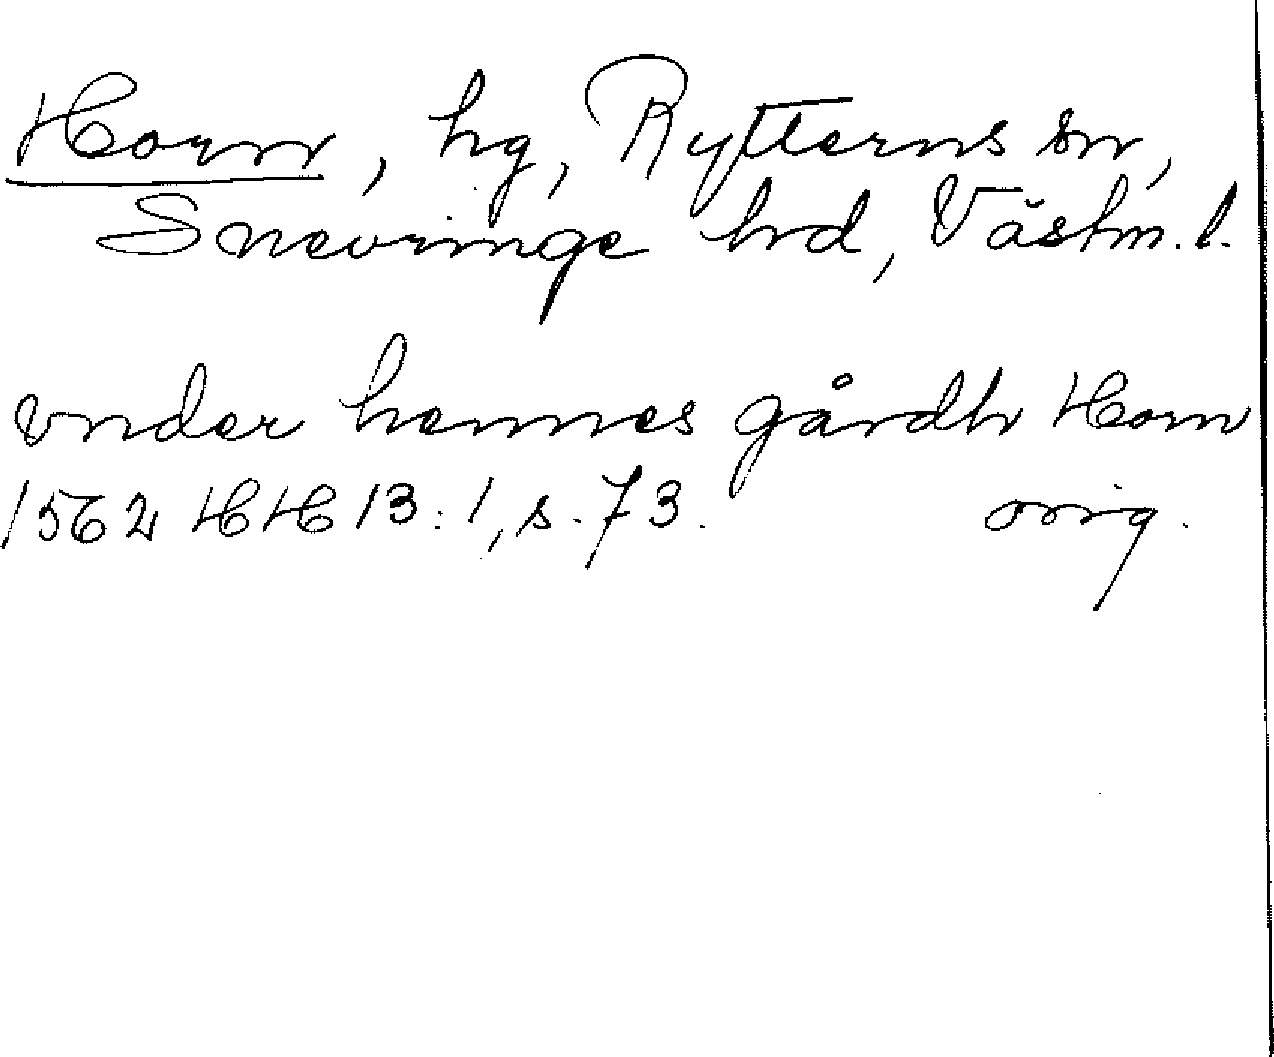 Horn, hg, Rytterns sn,
Snevringe hrd, Västm. l.
vnder hennes gårdh Horn
1562 HH 13:1, s. 73. orig.